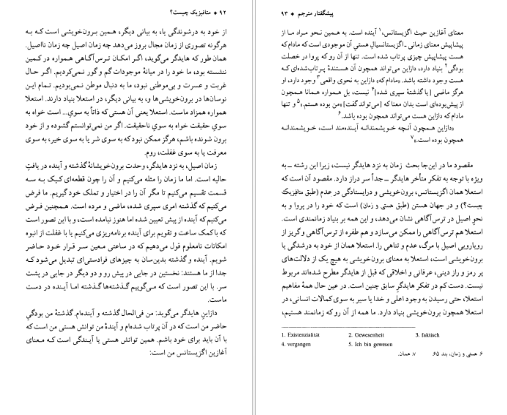 ۹۲ ● متافیزیک چیست؟
از خود به درشوندگی یا، به بیانی دیگر، همین برون‌خویشی است که به
هرگونه تصوری از زمان مجال بروز می‌دهد چه زمان اصیل چه زمان نااصیل.
همان طور که هایدگر می‌گوید، اگر امکان ترس‌آگاهی همواره در کمین
ننشسته بود، ما خود را در میانهٔ موجودات گم و گور نمی‌کردیم. اگر حال
غربت و عسرت و بی‌وطنی نبود، ما به دنبال موطن نمی‌بودیم. تمام این
نوسان‌ها در برون‌خویشی‌ها و، به بیانی دیگر، در استعلا بنیاد دارند. استعلا
همواره همزاد ماست. استعلا یعنی آن هستی که ذاتاً به سوی... است خواه به
سوی حقیقت خواه به سوی ناحقیقت. اگر من نمی‌توانستم گشوده و از خود
برون شونده باشم، هرگز ممکن نبود که به سوی شر یا به سوی خیر، به سوی
معرفت یا به سوی غفلت، روم.
زمان اصیل، به نزد هایدگر، وحدت برون‌خویشانهٔ گذشته و آینده در یافتِ
حالیه است. اما ما زمان را مثله می‌کنیم و آن را چون قطعه‌ای کیک به سه
قسمت تقسیم می‌کنیم تا مگر آن را در اختیار و تملک خود گیریم. ما فرض
می‌کنیم که گذشته امری سپری شده، ماضی و مرده است. همچنین فرض
می‌کنیم که آینده از پیش تعیین شده اما هنوز نیامده است، و با این تصور است
که با کمک ساعت و تقویم برای آینده برنامه‌ریزی می‌کنیم یا با غفلت از انبوه
امکانات نامعلوم قول می‌دهیم که در ساعتی معین سر قرار خود حاضر
شویم. آینده و گذشته بدین‌سان به چیزهای فرادستی‌ای تبدیل می‌شود که
جدا از ما هستند: نخستین در جایی در پیش رو و دیگر در جایی در پشت
سر. با این تصور است که می‌گوییم گذشته‌ها گذشته اما آینده در دست
ماست.
دازاین هایدگر می‌گوید: من فی‌الحال گذشته و آینده‌ام. گذشتهٔ من بودگیِ
حاضر من است که در آن پرتاب شده‌ام و آیندهٔ من توانش هستی من است که
با آن باید برای خود باشم. همین توانش هستی یا آیندگی است که معنای
آغازین اگزیستانس من است:
پیشگفتار مترجم ● ۹۳
معنای آغازین حیث اگزیستانس،¹ آینده است. به همین نحو مراد ما از
پیشاپیش معنای زمانی ـ اگزیستانسیال هستی آن موجودی است که مادام که
هست پیشاپیش چیزی پرتاب شده است. تنها از آن رو که پروا در خصلت
بودگی² بنیاد دارد، دازاین می‌تواند همچون آن هستندهٔ پرتاب‌شده‌ای که
هست وجود داشته باشد. ومادام که، دازاین به نحوی واقعی³ وجود دارد، او
هرگز ماضی [یا گذشتهٔ سپری شده]⁴ نیست، بل همواره همانا همچون
از پیش‌بوده‌ای است بدان معنا که [می‌تواند گفت] «من بوده هستم»،⁵ و تنها
مادام که دازاین هست می‌تواند همچون بوده باشد.⁶
«دازاین همچون آنچه خویشمندانه آینده‌مند است، خویشمندانه
بوده است.»⁷
مقصود ما در این‌جا بحث زمان به نزد هایدگر نیست، زیرا این رشته ــ به
ویژه با توجه به تفکر متأخر هایدگر ــ جداً سر دراز دارد. مقصود آن است که
استعلا همان اگزیستانس، برون‌خویشی و درایستادگی در عدم (طبق متافیزیک
چیست؟) و در جهان هستن (طبق هستی و زمان) است که خود را در پروا و به
نحو اصیل در ترس‌آگاهی نشان می‌دهد، و این همه بر بنیاد زمانمندی است.
استعلا هم ترس آگاهی را ممکن می‌سازد و هم طفره از ترس آگاهی و گریز از
رویارویی اصیل با مرگ، عدم و تناهی را. استعلا همان از خود به درشدگی یا
برون‌خویشی است. استعلا به معنای برون‌خویشی به هیچ یک از دلالت‌های
پر رمز و راز دینی، عرفانی و اخلاقی که قبل از هایدگر مطرح شده‌اند مربوط
نیست. دست کم در تفکر هایدگرِ سابق چنین است. در عین حال همهٔ مفاهیم
استعلا، حتی رسیدن به وجود اعلی و خدا یا سیر به سوی کمالات انسانی، در
استعلا همچون برون‌خویشی بنیاد دارد. ما همه از آن رو که زمانمند هستیم،
1. Existenzialität
2. Gewesenheit
3. faktisch
4. vergangen
5. Ich bin gewesen
۶. هستی و زمان، بند ۶۵.
۷. همان.